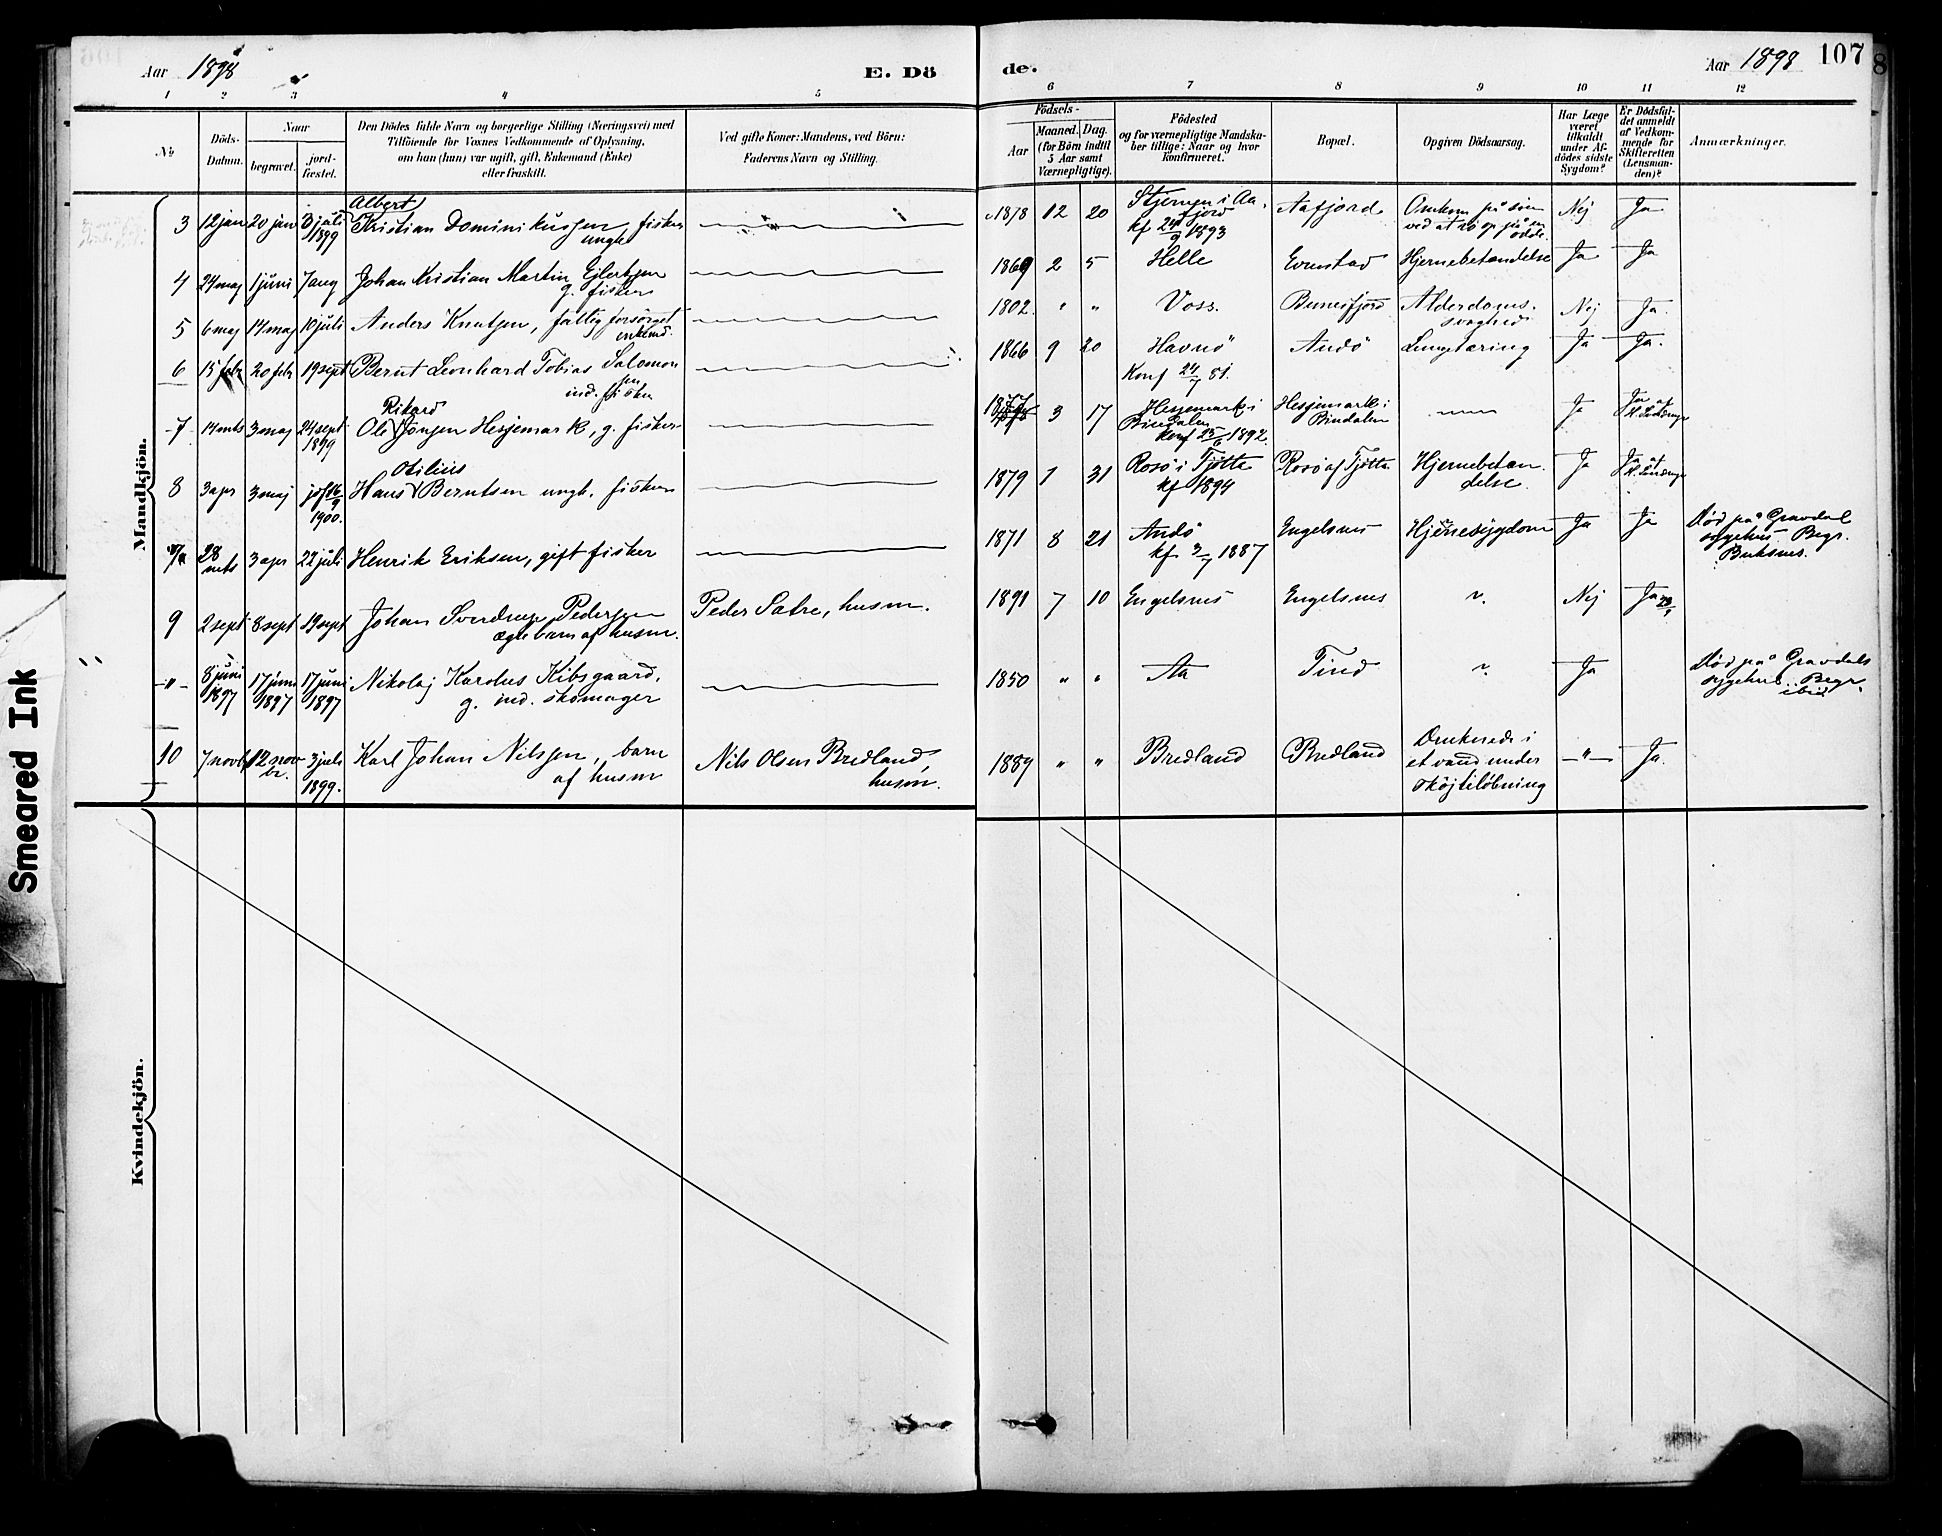 Aar 1898
E. Dö
de.
Aar 1898
107
1 2 3 4 5 6 7 8 9 10 11 12
№
Döds-
Datum.
Naar
begravet.
jord-
fæstet.
Den Dödes fulde Navn og borgerlige Stilling (Næringsvei) med
Tilföiende for Voxnes Vedkommende af Oplysning,
om han (hun) var ugift, gift, Enkemand (Enke)
eller fraskilt.
Ved gifte Koner: Mandens, ved Börn:
Faderens Navn og Stilling.
Födsels-
Aar
Maaned. Dag.
(for Börn indtil
5 Aar samt
Værnepligtige).
Födested
og for værnepligtige Mandska-
ber tillige: Naar og hvor
konfirmeret.
Bopæl.
Opgiven Dödsaarsag.
Har Læge
været
tilkaldt
under Af-
dödes sidste
Sygdom?
Er Dödsfal-
det anmeldt
af Vedkom-
mende for
Skifteretten
(Lensman-
den)?
Anmærkninger.
Mandkjön.
3 12 jan 20 jan 3 juli 1899
Albert
Kristian Dominikussen, fisker
ungk.
1878 12 20
Stjernen i Aa-
fjord
kf 24/9 1893
Aafjord
Omkom på söen
ved at ro op på en
odde.
Nej Ja
4 24 maj 1 juni 7 aug
Johan Kristian Martin Ejlertsen
g. fisker
1869 2 5 Helle Evenstad Hjernebetændelse Ja Ja
5 6 maj 14 maj 10 juli
Anders Knutsen, fattigforsörget
enkemd.
1802 " " Voss. Bunesfjord Alderdoms-
svaghed
Nej Ja.
6 15 febr 20 febr 19 sept
Bernt Leonhard Tobias Salomon
sen
ind. fisker
1866 9 20 Havnö
Konf 24/7 81.
Andö Lungetæring Ja Ja.
7 14 mts 3 maj 24 sept
1899
Rikard
Ole Jonsen Hesjemark, g. fisker
1877 3 17
Hesjemark i
Bindalen
konf 25/6 1892.
Hesjemark i
Bindalen
Ja Ja af
8 3 apr 3 maj jdf 16/9
1900.
Otilius
Hans Berntsen ungk. fisker
1879 1 31
Rosö i Tjötta
kf 1894
Rosö af Tjötta
Hjernebetæn-
delse.
Ja Ja af
28
mts 3 apr 22 juli
Henrik Eriksen, gift fisker
1871 8 21 Andö
kf 3/7 1887
Engelsnes Hjertesygdom Ja Ja
Död på Gravdal
sygehus. Begr.
Buksnes.
9 2 sept 8 sept 19 sept
Johan Sverdrup Pedersen
ægte barn af husm.
Peder Sætre, husm.
1891 7 10 Engelsnes Engelsnes ". Nej Ja
-"- 8 juni
1897
17 juni
1897
17 juni
1897
Nikolaj Karolus Kibsgaard,
g. ind. skomager
1850 " " Aa Tind " Ja
Död på Gravdals
sygehus. Begr.
ibid.
10 7 novbr 12 nov
br.
3 juli
1899.
Karl Johan Nilssen, barn
af husm
Nils Olsen Bredland,
husm.
1889 " " Bredland Bredland
Druknede i
et vand under
sköjtelöbning
-"- Ja.
Kvindekjön.
Smeared Ink